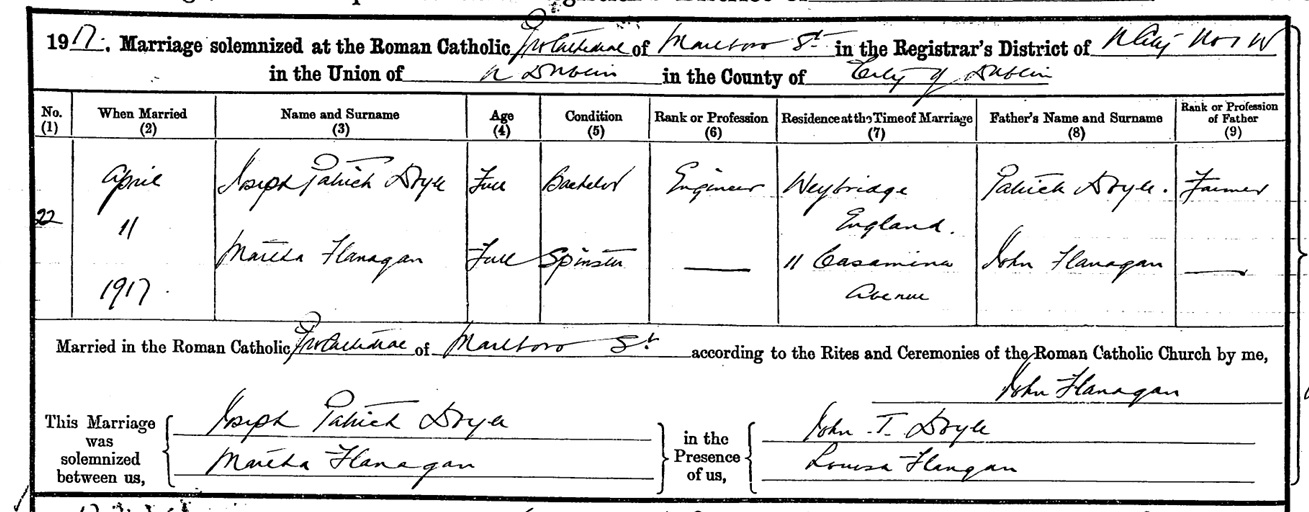 1917. Marriage solemnized at the Roman Catholic ProCathedral of Marlboro St in the Registrar's District of N City No 1 W
in the Union of N Dublin in the County of City of Dublin
No. (1) When Married (2) Name and Surname (3) Age (4) Condition (5) Rank or Profession (6) Residence at the Time of Marriage (7) Father's Name and Surname (8) Rank or Profession of Father (9)
April Joseph Patrick Doyle Full Bachelor Engineer Weybridge Patrick Doyle. Farmer
22 11 England.
Martha Flanagan Full Spinster — 11 Casamina John Flanagan —
1917. Avenue
Married in the Roman Catholic ProCathedral of Marlboro St according to the Rites and Ceremonies of the Roman Catholic Church by me,
John Flanagan
This Marriage was solemnized between us, Joseph Patrick Doyle in the Presence of us, John T. Doyle
Martha Flanagan Louisa Flangan